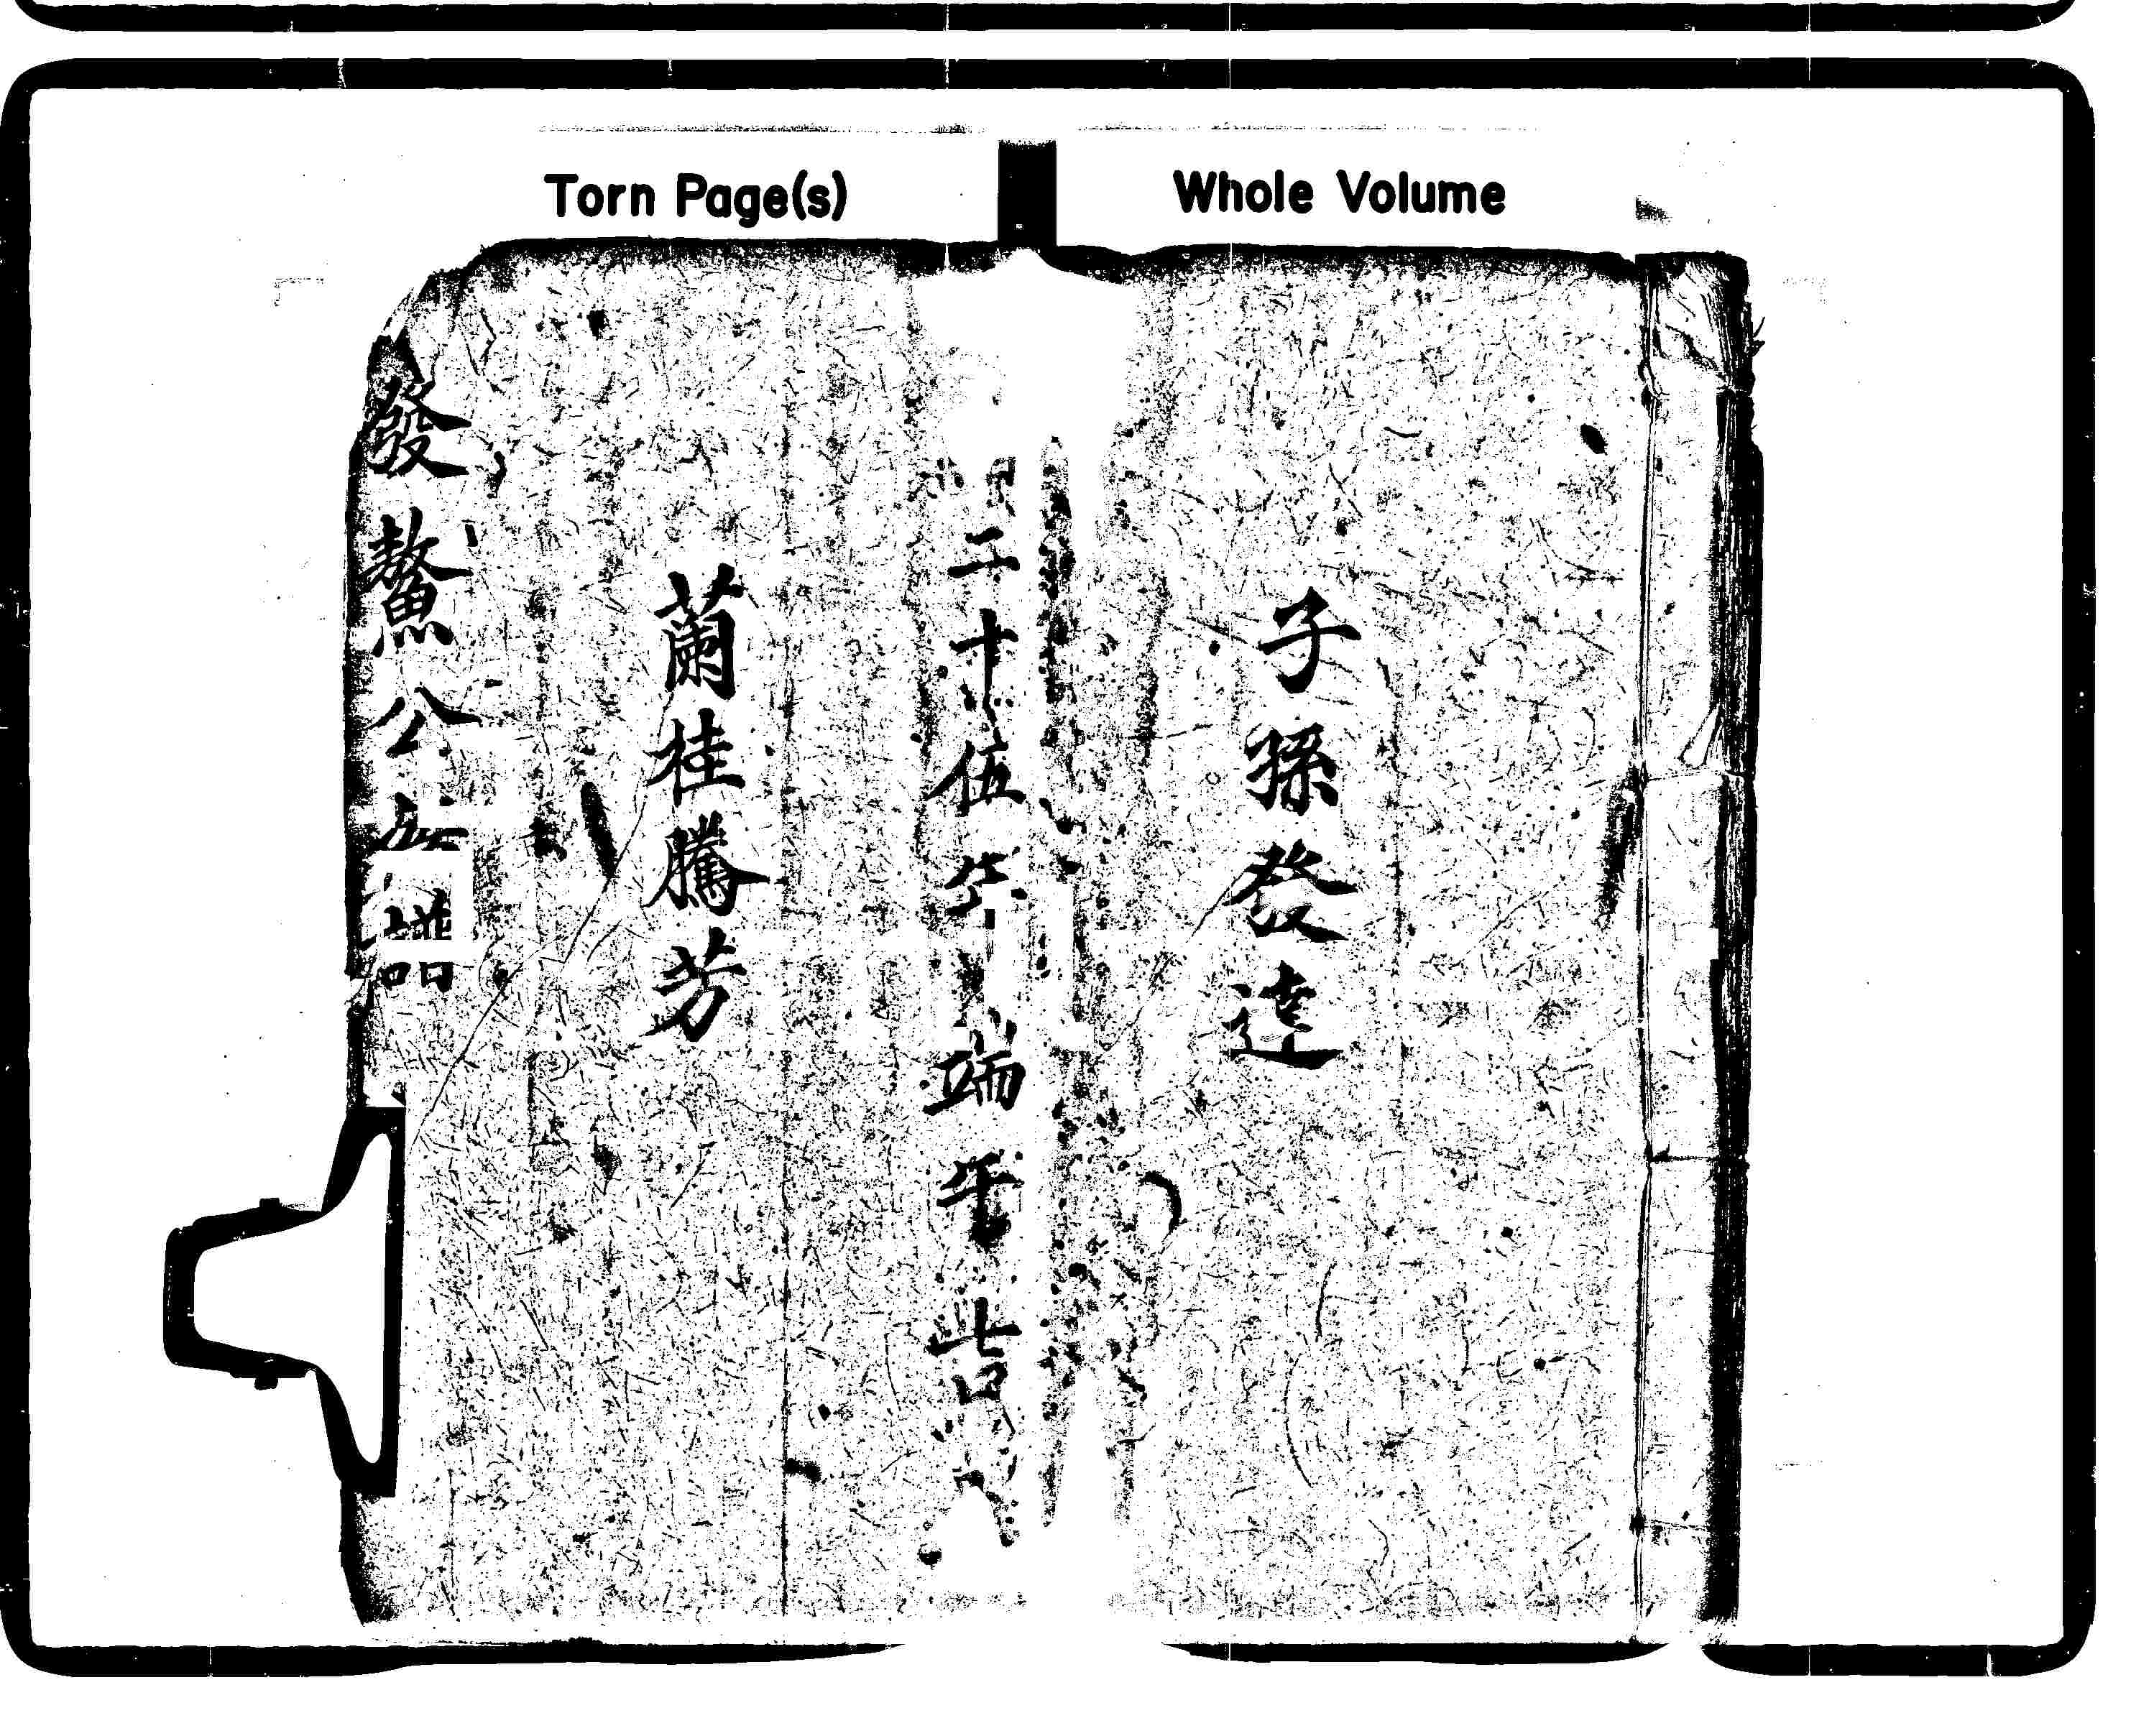 Torn Page(s)
Whole Volume
子孫發達
二十伍年端午告
蘭桂騰芳
發鰲公 譜